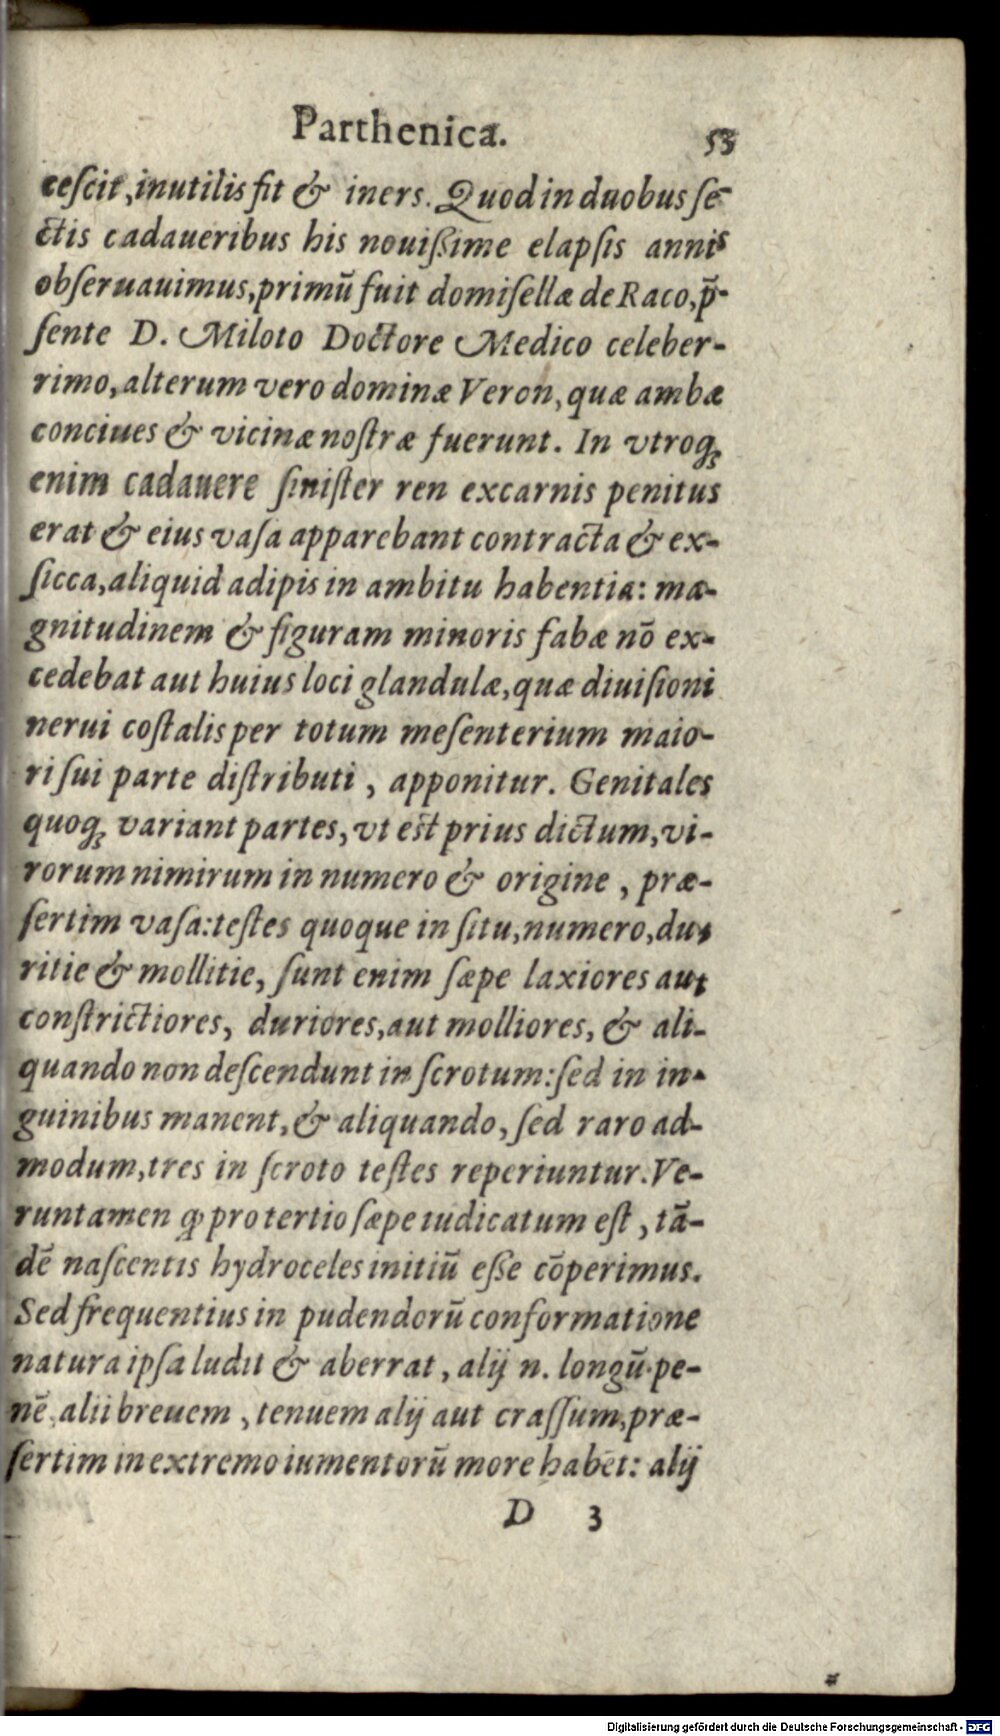 Parthenica. 53
cescit, inutilis fit & iners. Quod in duobus se-
ctis cadaueribus his nouißime elapsis annis
obseruauimus, primū fuit domisellæ de Raco, p̄-
sente D. Miloto Doctore Medico celeber-
rimo, alterum vero dominæ Veron, quæ ambæ
conciues & vicinæ nostræ fuerunt. In vtroq́;
enim cadauere sinister ren excarnis penitus
erat & eius vasa apparebant contracta & ex-
sicca, aliquid adipis in ambitu habentia: ma-
gnitudinem & figuram minoris fabæ nō ex-
cedebat aut huius loci glandulæ, quæ diuisioni
nerui costalis per totum mesenterium maio-
ri sui parte distributi, apponitur. Genitales
quoq; variant partes, vt est prius dictum, vi-
rorum nimirum in numero & origine, præ-
sertim vasa: testes quoque in situ, numero, du-
ritie & mollitie, sunt enim sæpe laxiores aut
constrictiores, duriores, aut molliores, & ali-
quando non descendunt in scrotum: sed in in-
guinibus manent, & aliquando, sed raro ad-
modum, tres in scroto testes reperiuntur. Ve-
runtamen ꝙ pro tertio sæpe iudicatum est, tā-
dē nascentis hydroceles initiū eße cōperimus.
Sed frequentius in pudendorū conformatione
natura ipsa ludit & aberrat, alij n. longū pe-
nē, alii breuem, tenuem alij aut crassum, præ-
sertim in extremo iumentorū more habēt: alij
D 3
Digitalisierung gefördert durch die Deutsche Forschungsgemeinschaft - DFG